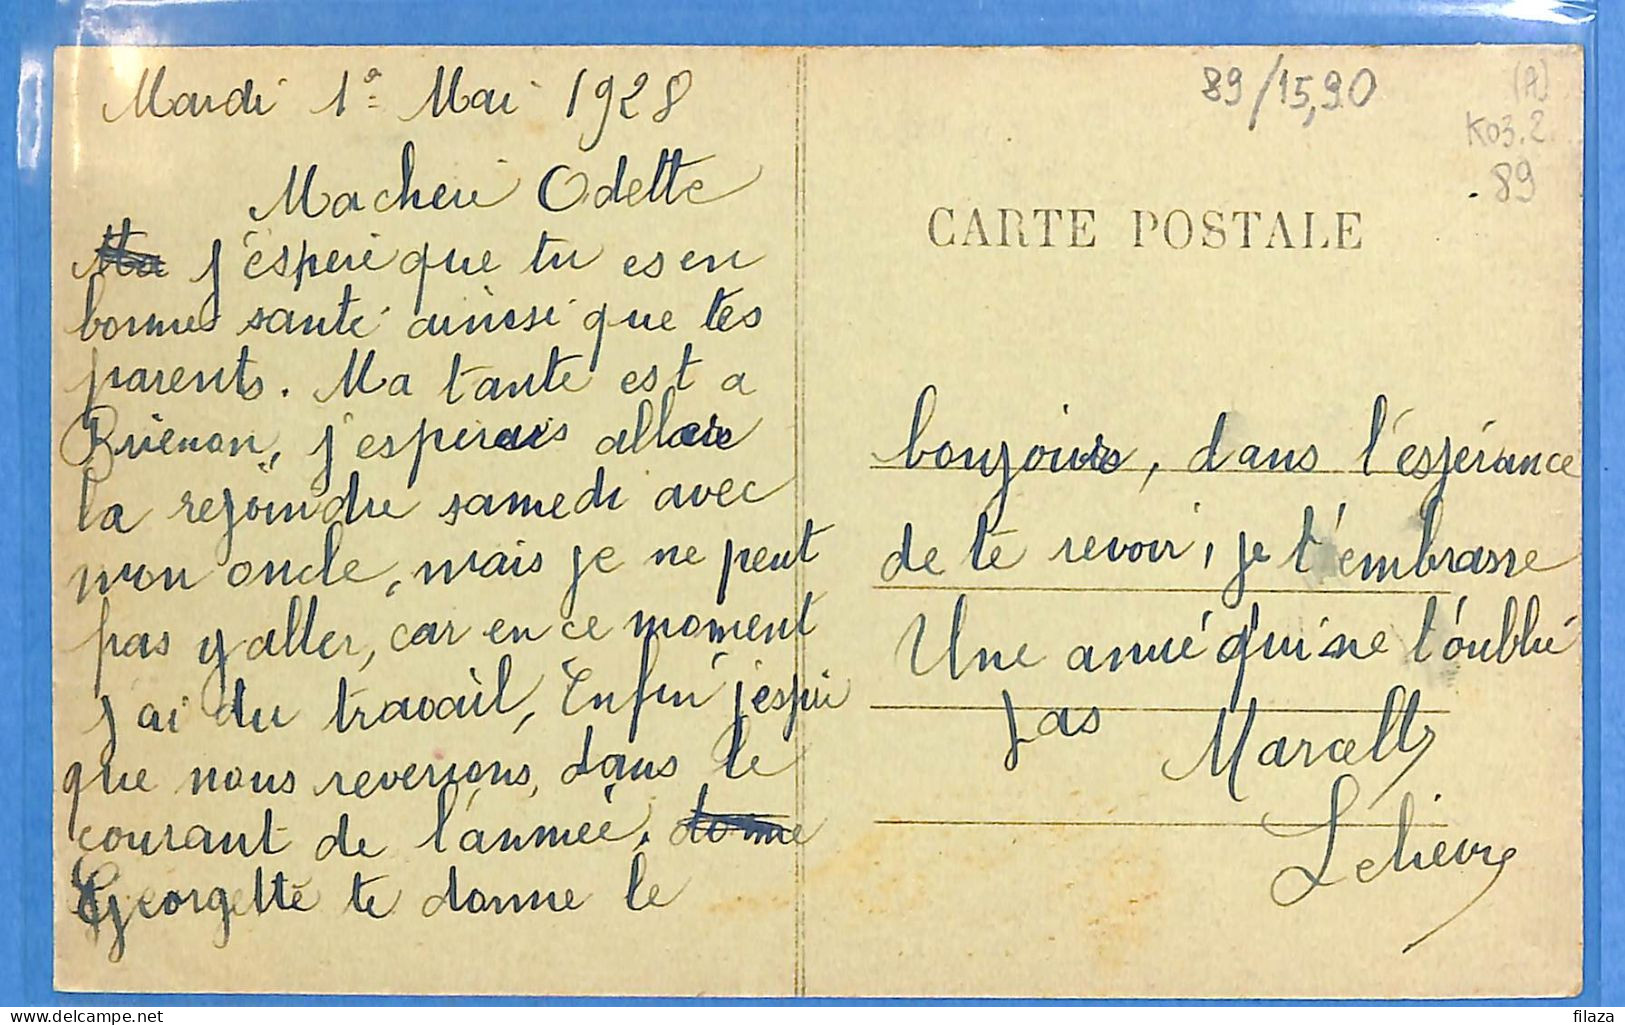 Mardi 1º Mai 1928
Ma cheri Odette
Ma j'esperé que tu es en
bonne santé ainsi que tes
parents. Ma tante est a
Brienon, j'esperais aller
la rejoindre samedi avec
mon oncle, mais je ne peut
pas y aller, car en ce moment
j'ai du travail, Enfin j'espér
que nous reverrons, dans le
courant de l'année. donne
Georgette te donne le
CARTE POSTALE
89/15,90
(A)
K03.2
.89
bonjours, dans l'espérance
de te revoir, je t'embrasse
Une amie qui ne t'oublié
pas Marcelle
Lelievre
delcampe.net
filaza